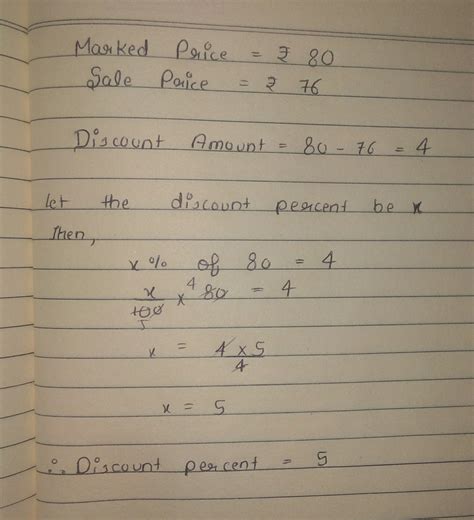 Marked Price = ₹ 80
Sale Price = ₹ 76
Discount Amount = 80 - 76 = 4
let the discount percent be x
Then,
x % of 80 = 4
x/100 5 × 4 80 = 4
x = 4 × 5/4
x = 5
∴ Discount percent = 5